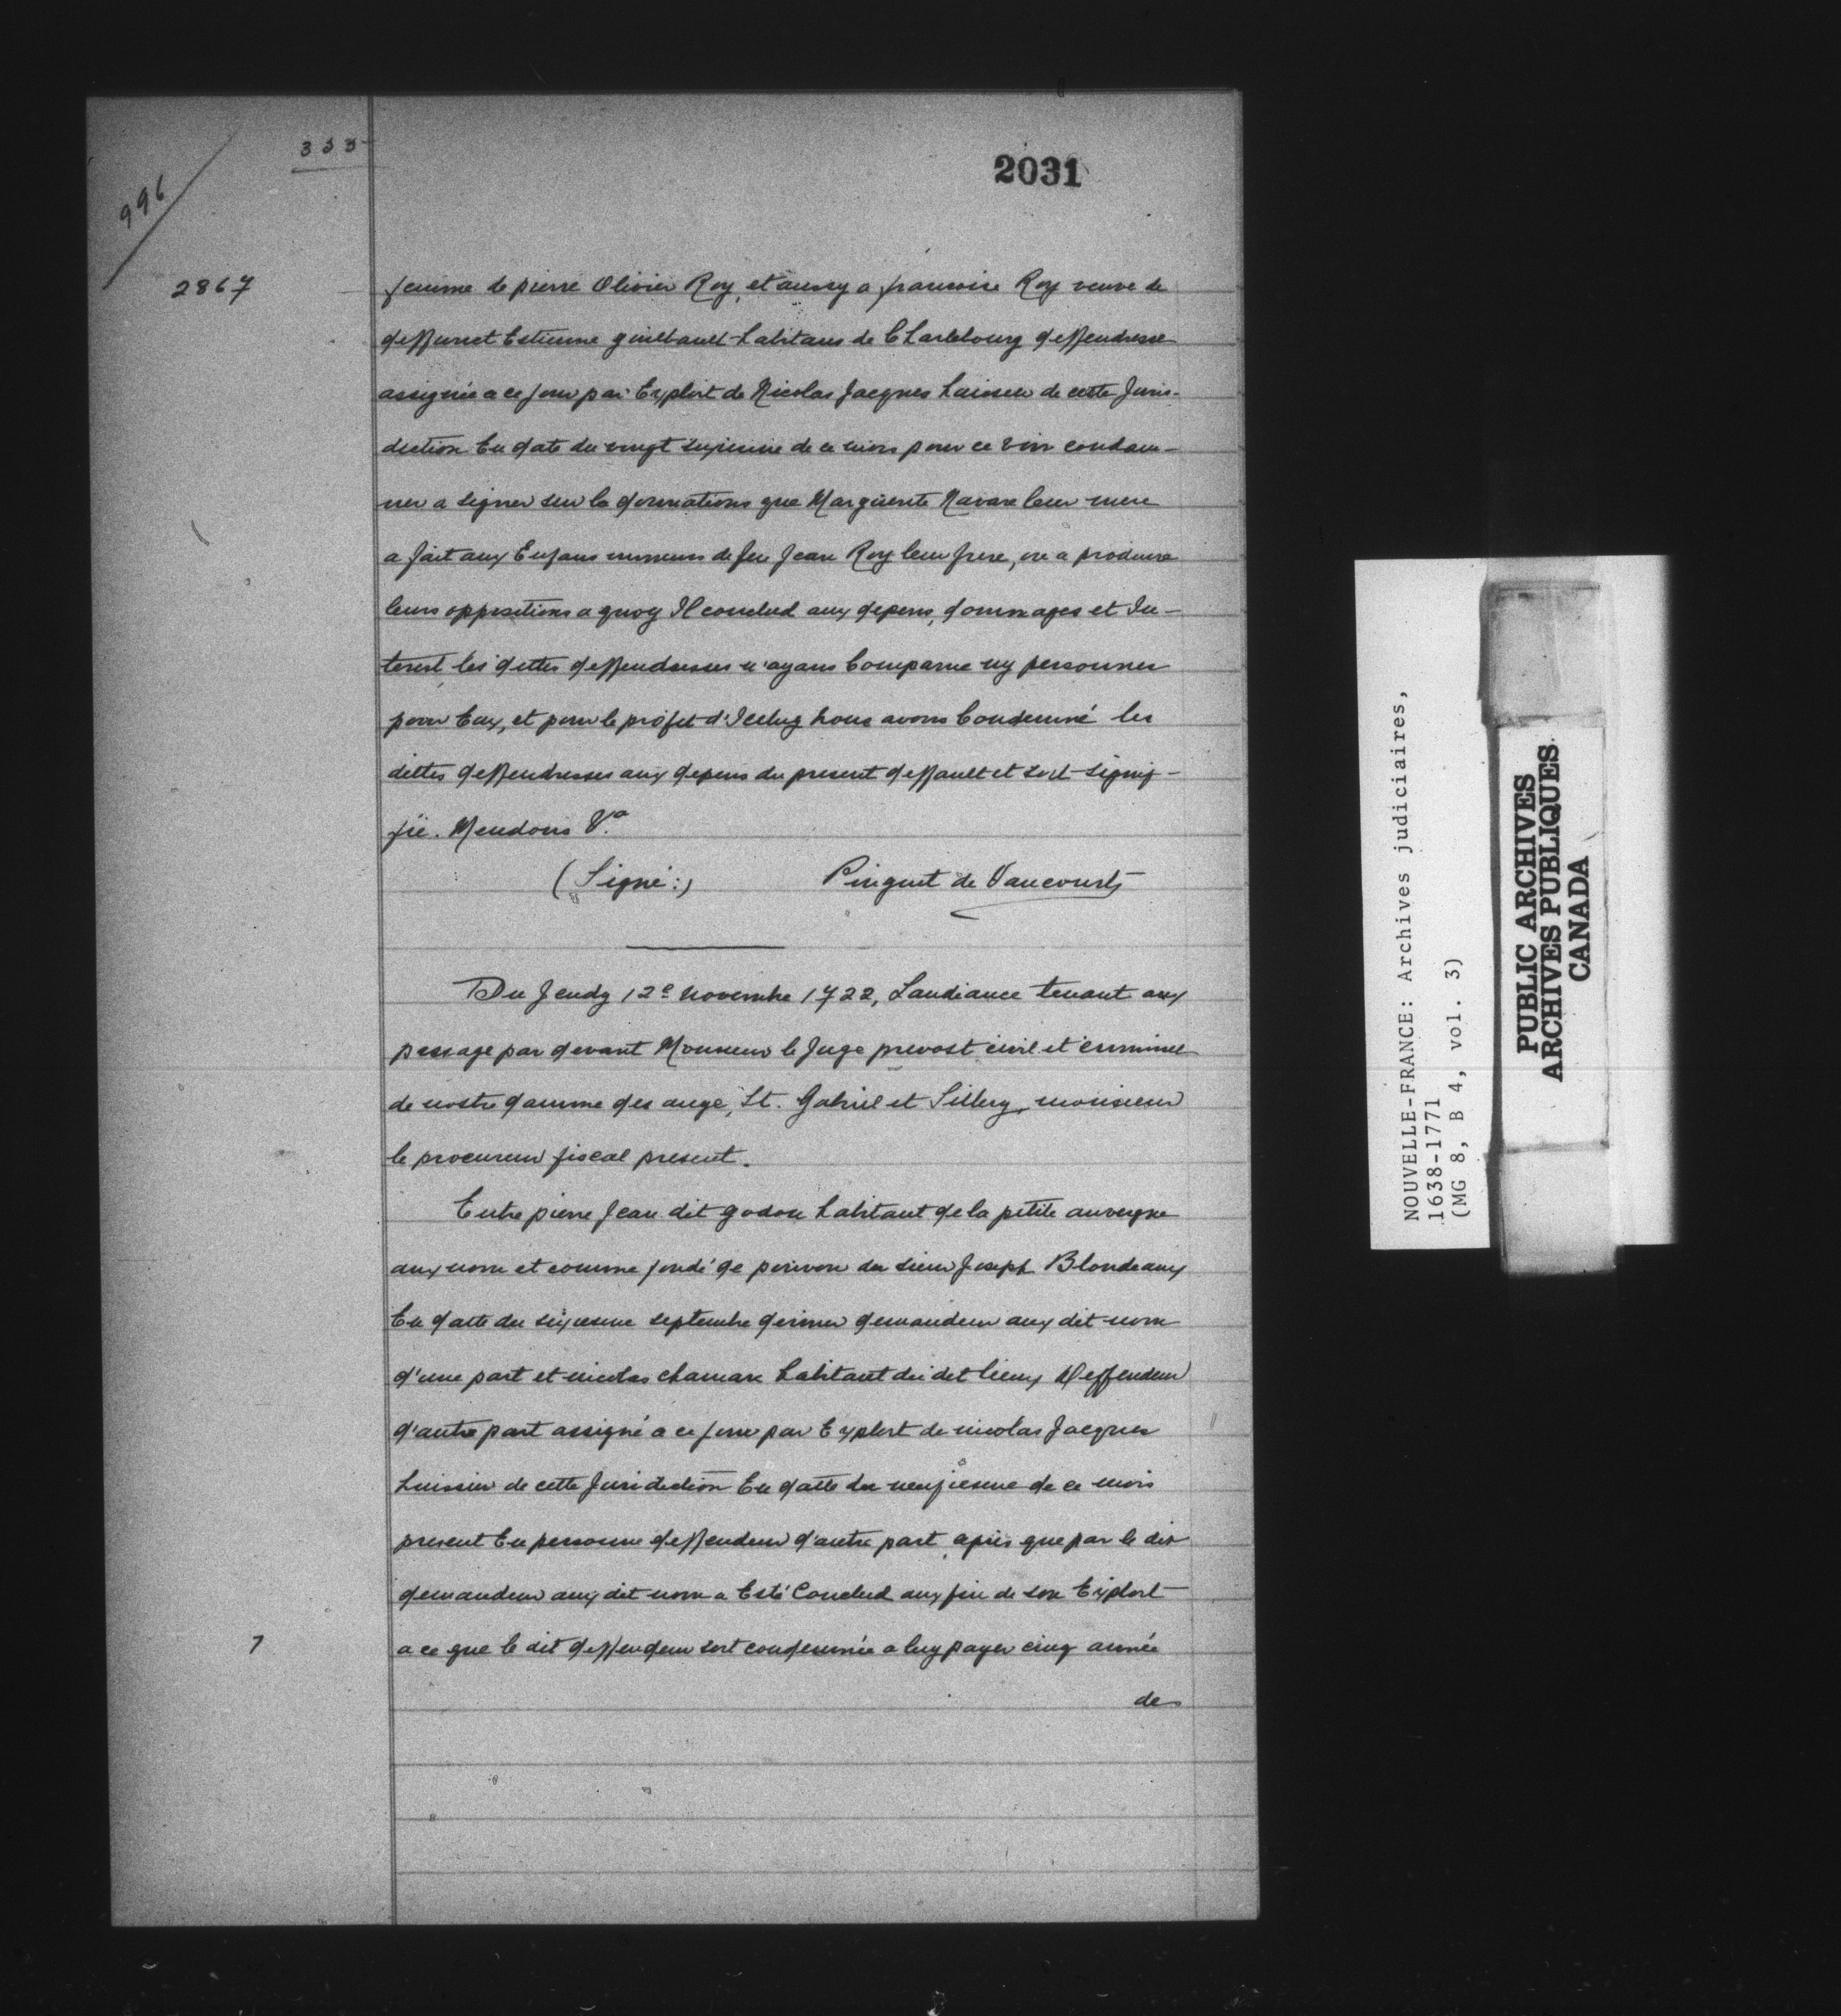 333
996
2031
2867
femme de pierre Olivier Roy, et aussy a francoise Roy veuve de
deffunct Estienne guilbault habitans de Charlebourg deffendresse
assignée a ce jour par Exploit de Nicolas Jacques huissier de cette Juris-
diction En date du vingt sixiesme de ce mois pour ce voir condam-
ner a signer sur la donnations que Marguerite Navare leur mere
a fait aux Enfans mineurs de feu Jean Roy leur frere, ou a produire
leurs oppositions a quoy Il conclud aux depens, dommages et In-
terest les dittes deffendresses n'ayans Comparue ny personnes
pour Eux, et pour le profit d'Iceluy nous avons Condemné les
dittes deffendresses aux depens du present deffault et soit signif-
fié. Mendons &a
(Signé:) Pinguet de Vaucourts
Du Jeudy 12e novembre 1722, Laudiance tenant aux
passage par devant Monsieur le Juge prevost civil et criminel
de nostre damme des ange, St. Gabriel et Sillery, monsieur
le procureur fiscal present.
Entre pierre Jean dit godon habitant de la petite auvergne
aux nom et comme fondé de pouvoir du sieur Joseph Blondeaux
En datte du sixiesme septembre dernier demandeur aux dit nom
d'une part et nicolas chamare habitant du dit lieux Deffendeur
d'autre part assigné a ce jour par Exploit de nicolas Jacques
huissier de cette Juridiction En datte du neufiesme de ce mois
present En personne deffendeur d'autre part, après que par le dit
demandeur aux dit nom a Esté Conclud aux fin de son Exploit
7
a ce que le dit deffendeur soit condemnée a luy payer cinq année
des
NOUVELLE-FRANCE: Archives judiciaires,
1638-1771
(MG 8, B 4, vol. 3)
PUBLIC ARCHIVES
ARCHIVES PUBLIQUES
CANADA